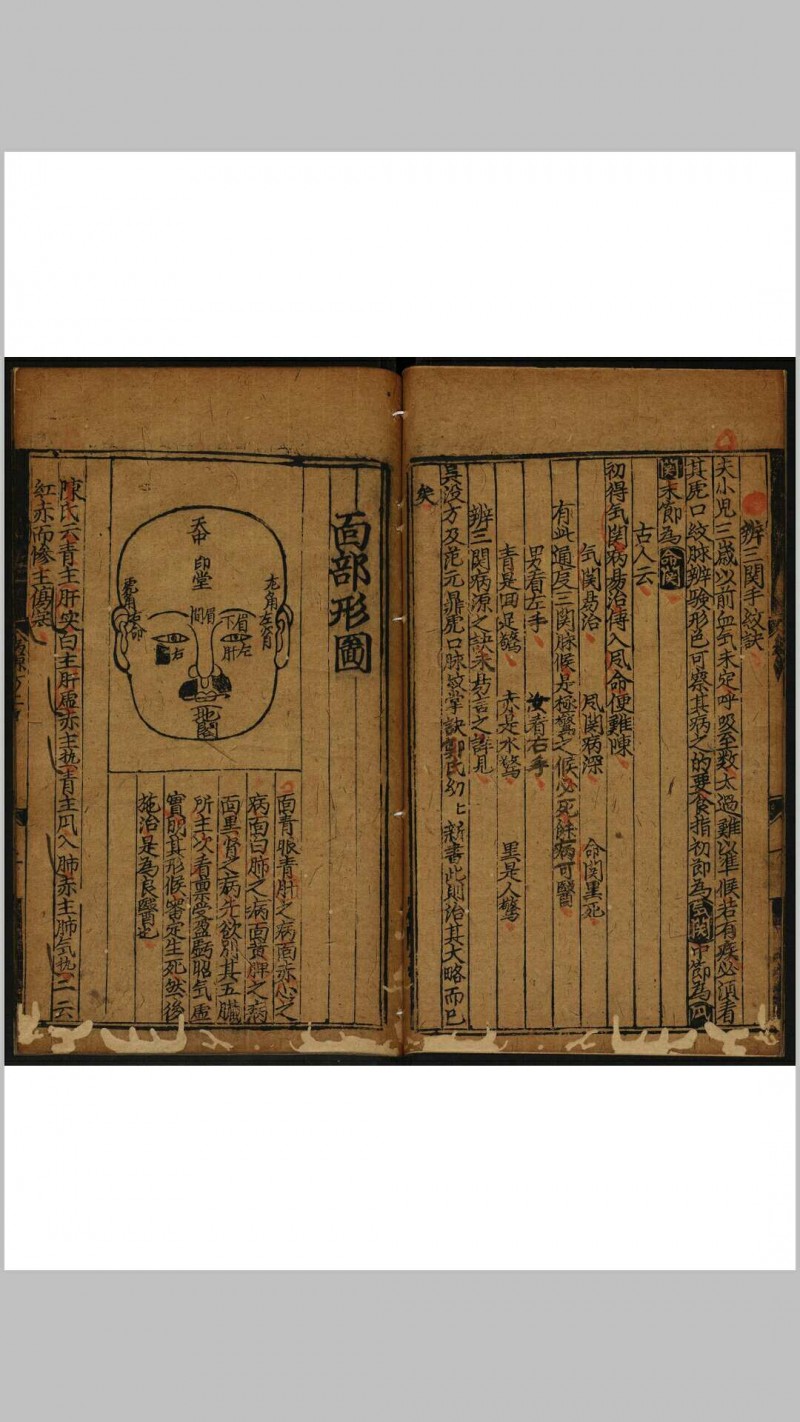 辨三関手紋訣
夫小児三歳以前血気未定呼吸至数太過難以準候若有疾必湏看
其虎口紋脉辨験形色可察其病之的要食指初節為気関中節為風
関末節為命関
古人云
初得気関病易治傳入風命便難陳
気関易治 風関病深 命関黒死
有此通度三関脉候是極驚之候必死餘病可醫
男看左手 汝看右手
青是四足驚 赤是水驚 黒是人驚
辨三関病源之訣未易言之詳見
呉没方及范元鼎虎口脉紋掌訣鄭氏幼上新書此則治其大略而已
矣
面部形圖
天中
印堂
左角左太陽
眉間
眉下
左肝
右
地閣
面青眼青肝之病面赤心之
病面白肺之病面黄脾之病
面黒腎之病先欲別其五臓
所主次看禀受盈虧胎気虚
實明其形候審定生死然後
施治是為良醫也
陳氏云青主肝央白主肝虚赤主热青主風入肺赤主肺気热二云
紅赤而慘主傷寒